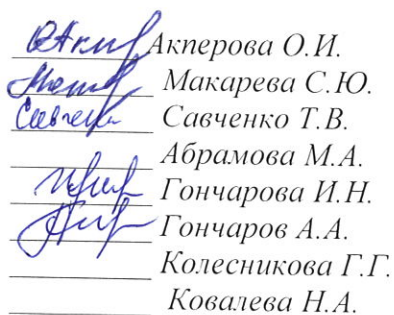 Акперова О.И.
Макарева С.Ю.
Савченко Т.В.
Абрамова М.А.
Гончарова И.Н.
Гончаров А.А.
Колесникова Г.Г.
Ковалева Н.А.